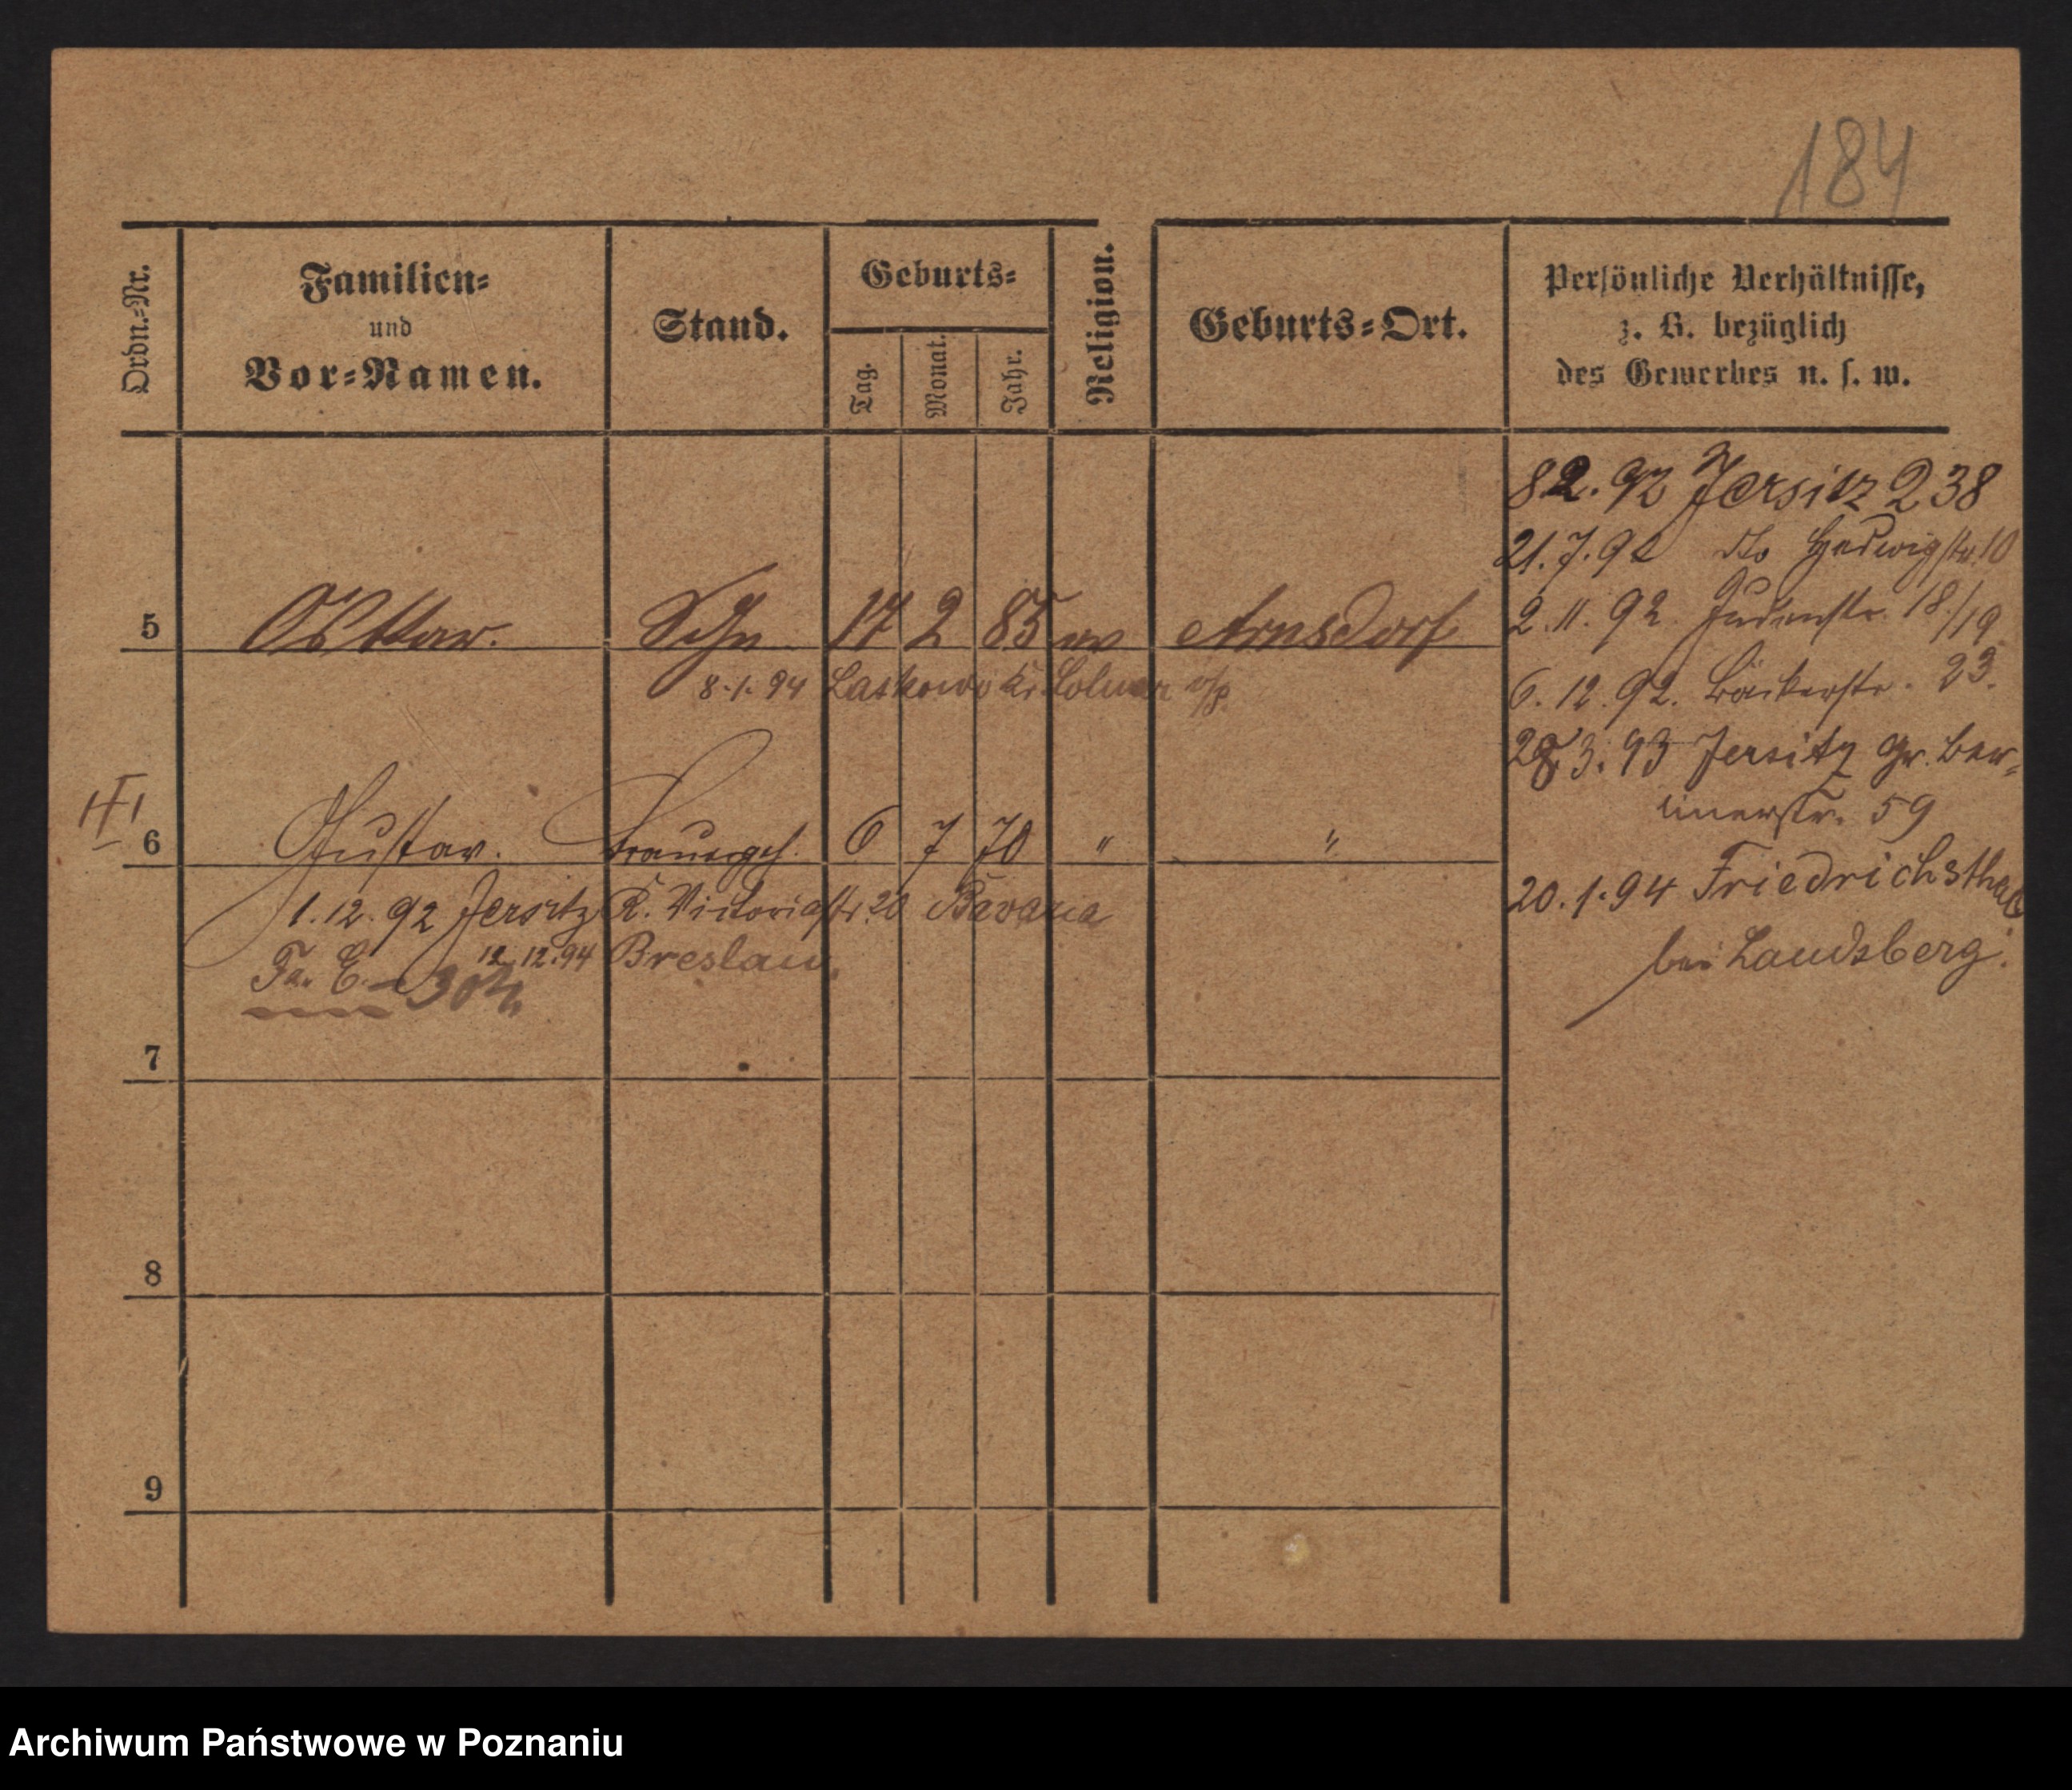 184
Ordn.-Nr.
Familien-
und
Vor-Namen.
Stand.
Geburts-
Tag.
Monat.
Jahr.
Religion.
Geburts-Ort.
Persönliche Verhältnisse,
z. B. bezüglich
des Gewerbes u. s. w.
82.92 Jersitz 238
21.7.92 dto Hedwigstr. 10
2.11.92. Judenstr. 18/19
6.12.92. Bäckerstr. 23.
28.3.93 Jersitz Gr. Ber-
linerstr. 59
20.1.94 Friedrichsthal
bei Landsberg.
5 Oskar. Sohn 17 2 85 ev Arnsdorf
8.1.94 Laskowo Kr. Colmar i/p.
6 Gustav. Brauergeh. 6 7 70 " "
1.12.92 Jersitz K. Victoriastr. 20 Bavaria
12.12.94 Breslau.
7
8
9
Archiwum Państwowe w Poznaniu